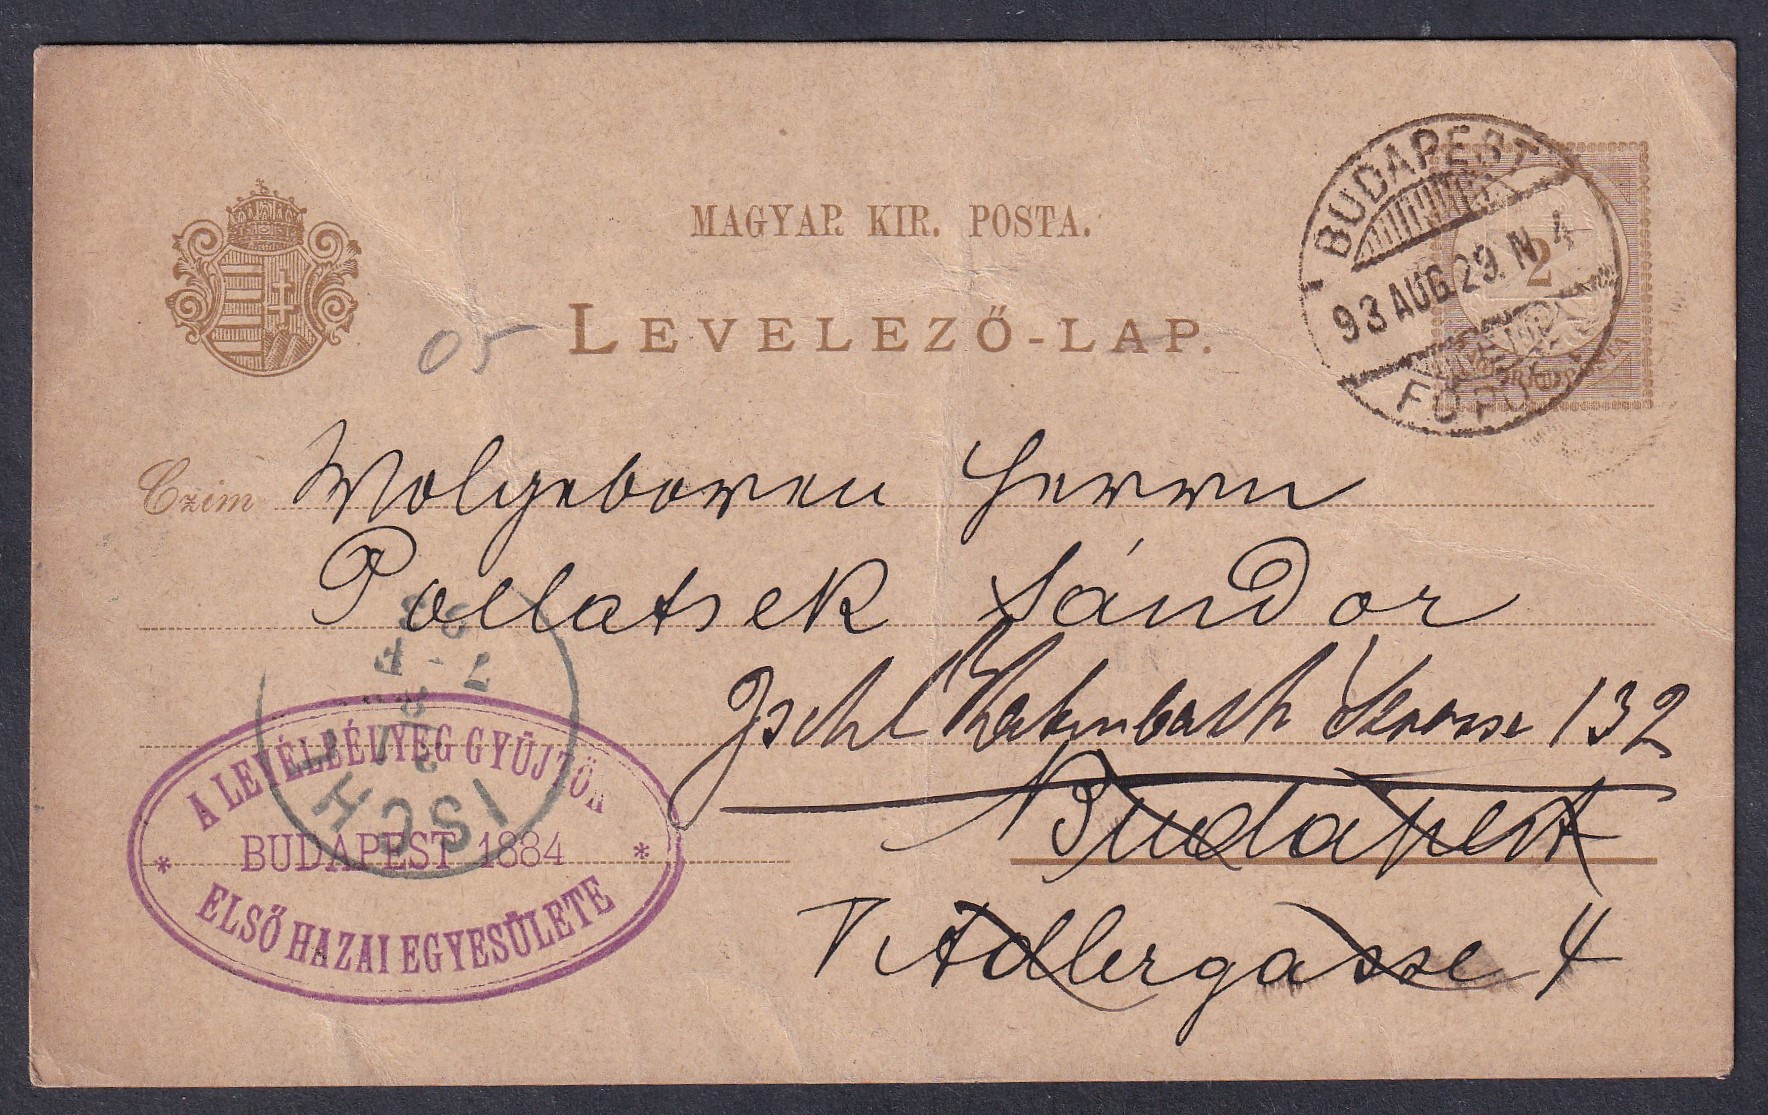 MAGYAR KIR. POSTA.
LEVELEZŐ-LAP.
05
BUDAPEST
93 AUG. 29. N. 4
FŐPO
2
Czim Wolgeboren Herrn
Pollatsek Sándor
Ischl Strasse 132
Budapest
V Adlergasse 4
A LEVÉLBÉLYEG GYŰJTŐK
* BUDAPEST 1884 *
ELSŐ HAZAI EGYESÜLETE
ISCHL